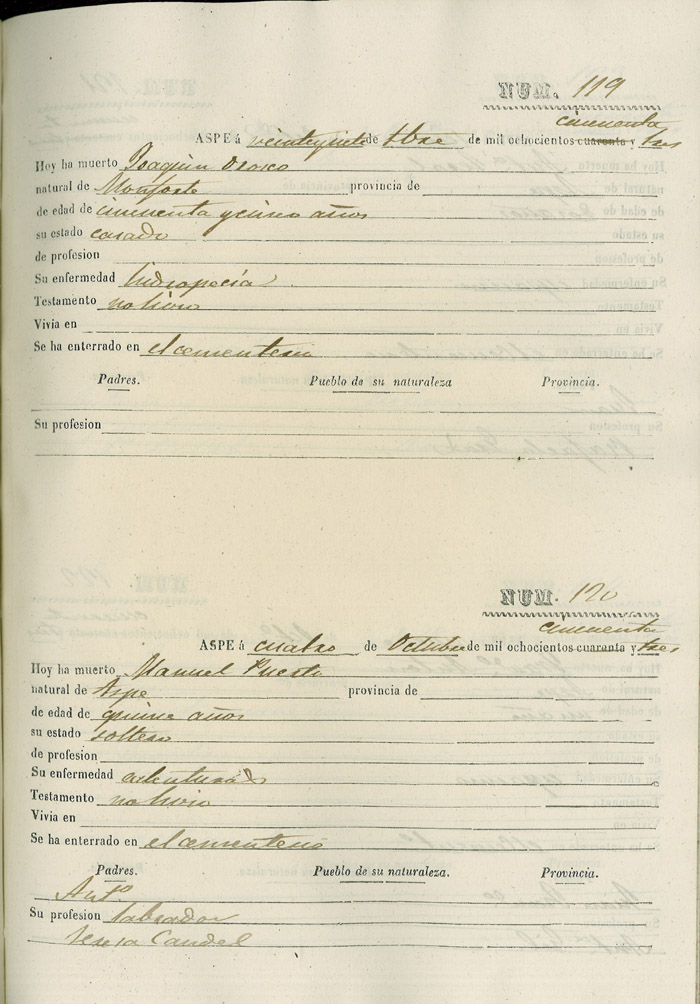 NUM. 119
cincuenta
ASPE á veintisiete de 7bre de mil ochocientos cuaranta y tres
Hoy ha muerto Joaquin Orosco
natural de Monforte provincia de
de edad de cincuenta y cinco años
su estado casado
de profesion
Su enfermedad hidropecia
Testamento no hizo
Vivia en
Se ha enterrado en el cementerio
Padres. Pueblo de su naturaleza Provincia.
Su profesion
NUM. 120
cincuenta
ASPE á cuatro de Octubre de mil ochocientos cuaranta y tres
Hoy ha muerto Manuel Puerto
natural de Aspe provincia de
de edad de quince años
su estado soltero
de profesion
Su enfermedad
Testamento no hizo
Vivia en
Se ha enterrado en el cementerio
Padres. Pueblo de su naturaleza. Provincia.
Anto.
Su profesion labrador
Teresa Candel